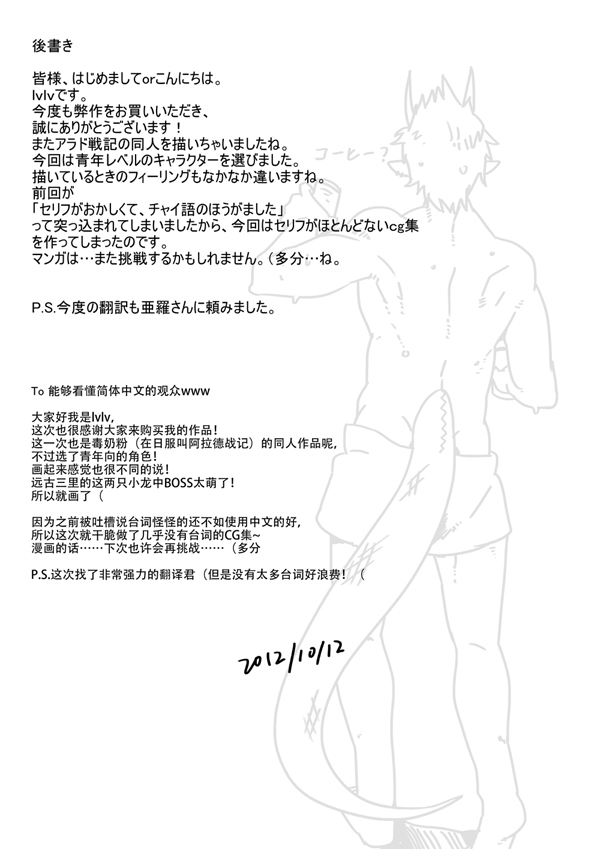 後書き
皆様、はじめましてorこんにちは。
lvlvです。
今度も弊作をお買いいただき、
誠にありがとうございます！
またアラド戦記の同人を描いちゃいましたね。
今回は青年レベルのキャラクターを選びました。
描いているときのフィーリングもなかなか違いますね。
前回が
「セリフがおかしくて、チャイ語のほうがました」
って突っ込まれてしまいましたから、今回はセリフがほとんどないcg集
を作ってしまったのです。
マンガは…また挑戦するかもしれません。（多分…ね。
コーヒー？
P.S.今度の翻訳も亜羅さんに頼みました。
To 能够看懂简体中文的观众www
大家好我是lvlv,
这次也很感谢大家来购买我的作品！
这一次也是毒奶粉（在日服叫阿拉德战记）的同人作品呢,
不过选了青年向的角色！
画起来感觉也很不同的说！
远古三里的这两只小龙中BOSS太萌了！
所以就画了（
因为之前被吐槽说台词怪怪的还不如使用中文的好,
所以这次就干脆做了几乎没有台词的CG集~
漫画的话……下次也许会再挑战……（多分
P.S.这次找了非常强力的翻译君（但是没有太多台词好浪费！（
2012/10/12